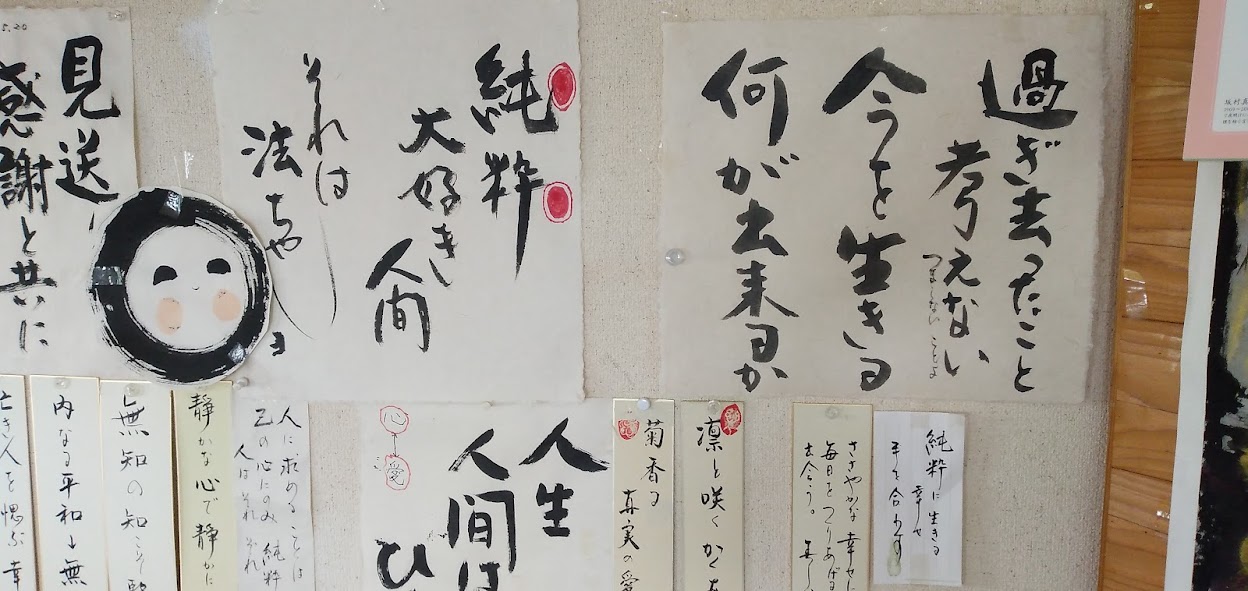 過ぎ去ったこと
考えない
つまらないことよ
今を生きる
何が出来るか
純粋
大好き
人間
それは
法ちゃん
5.20
見送り
感謝と共に
純粋に生きる
幸せ
手を合わす
ささやかな幸せに
毎日をつりあげる
出会う。
凛と咲く
菊香る
真実の愛
人生
人間は
ひ
心
愛
人に求めることは
己の心にのみ純粋
人はそれぞれ
静かな心で静かに
無知の知こそ
内なる平和
無
亡き人を偲ぶ幸